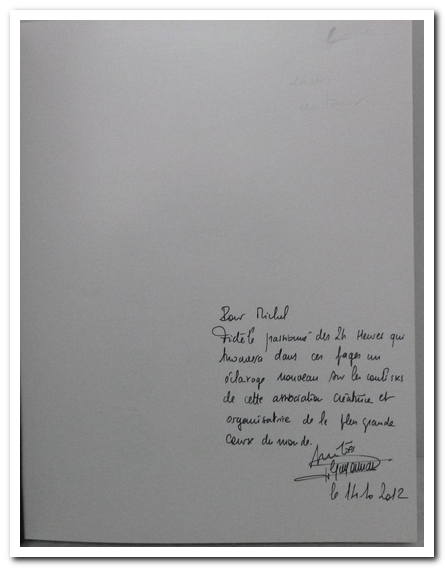 Pour Michel
Fidèle passionné des 24 Heures qui
trouvera dans ces pages un
éclairage nouveau sur les coulisses
de cette association créatrice et
organisatrice de la plus grande
course du monde.
Amitiés
le 14 10 2012